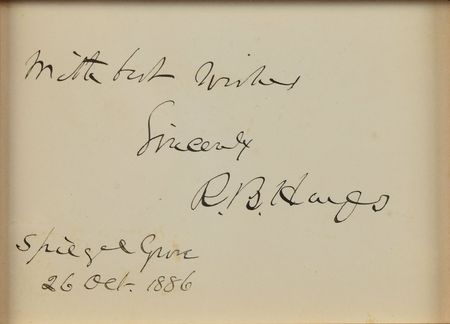 With best wishes
Sincerely
R. B. Hayes
Spiegel Grove
26 Oct. 1886